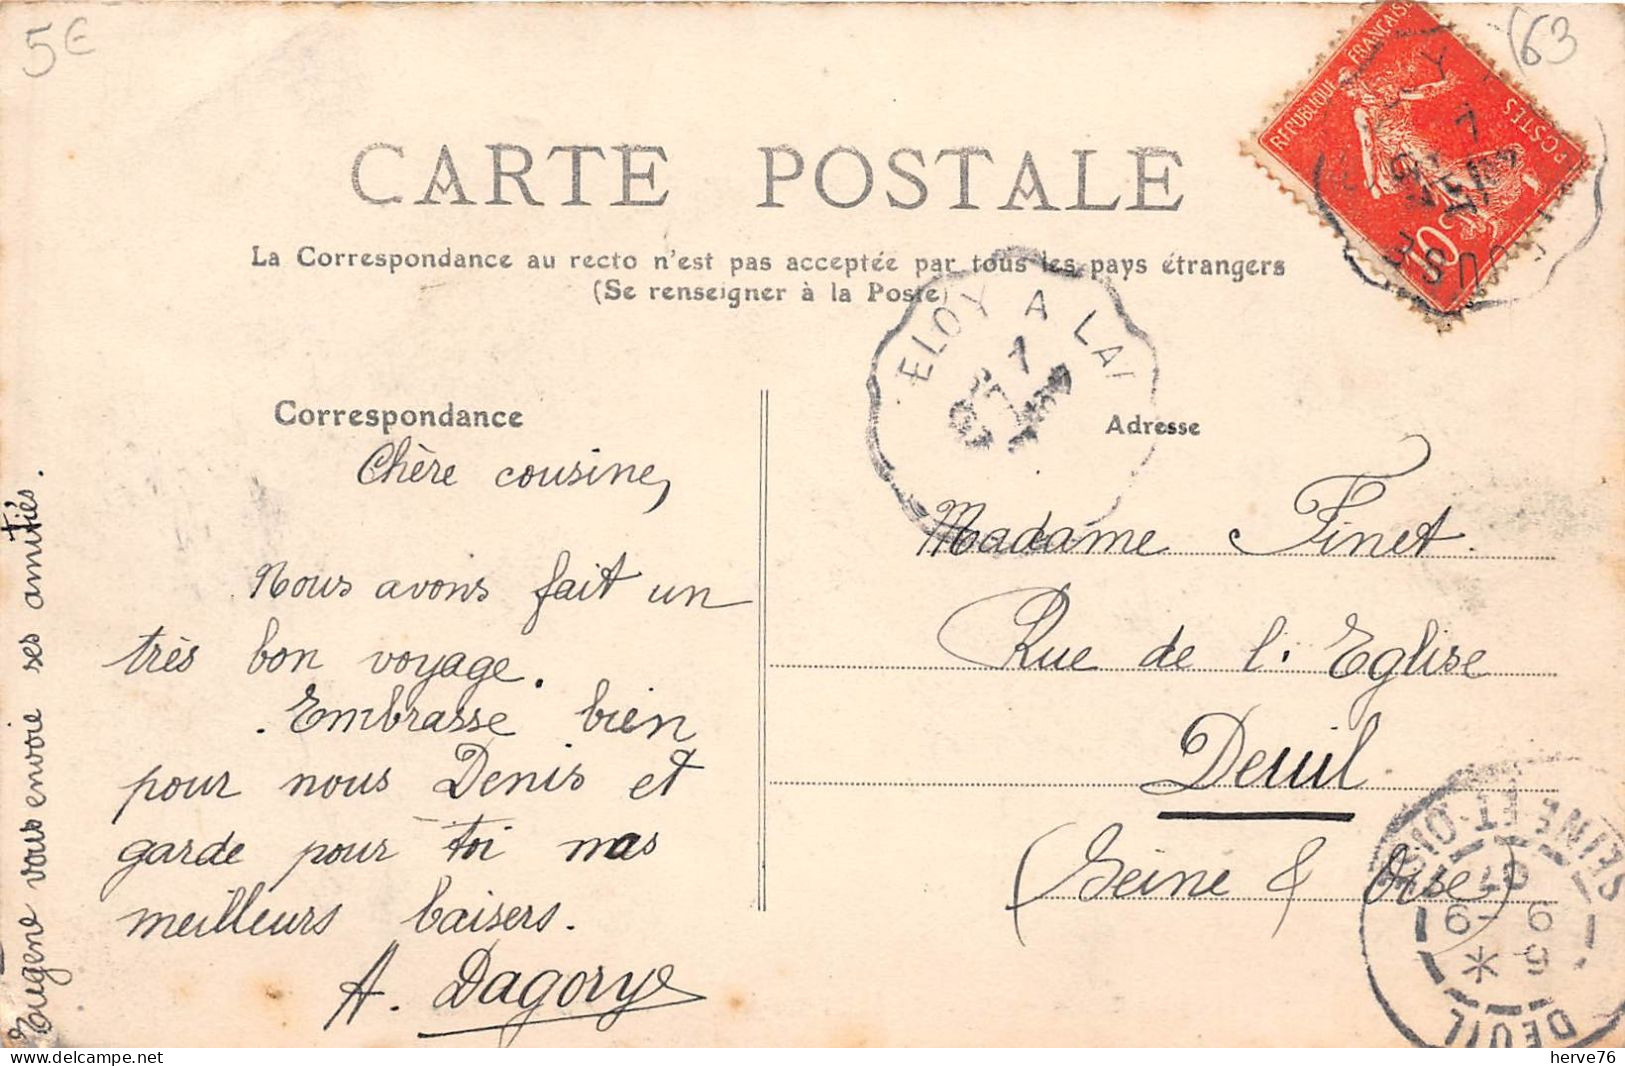 5€
(63
CARTE POSTALE
La Correspondance au recto n'est pas acceptée par tous les pays étrangers
(Se renseigner à la Poste)
REPUBLIQUE FRANÇAISE
POSTES
10c
ELOY A LAI
7
07
Correspondance
Chère cousine,
Nous avons fait un
très bon voyage.
Embrasse bien
pour nous Denis et
garde pour toi nos
meilleurs baisers.
A. Dagorye
Eugène vous envoie ses amitiés.
Adresse
Madame Finet.
Rue de l'Eglise
Deuil
(Seine & Oise)
SEINE-ET-OISE
DEUIL
herve76